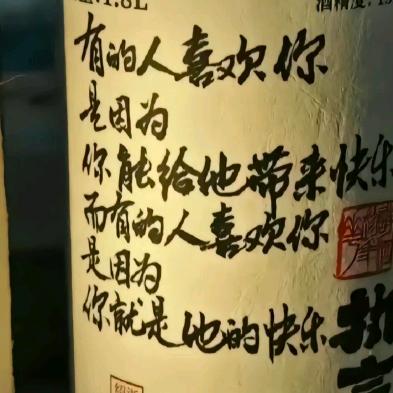 有的人喜欢你
是因为
你能给他带来快乐
而有的人喜欢你
是因为
你就是他的快乐